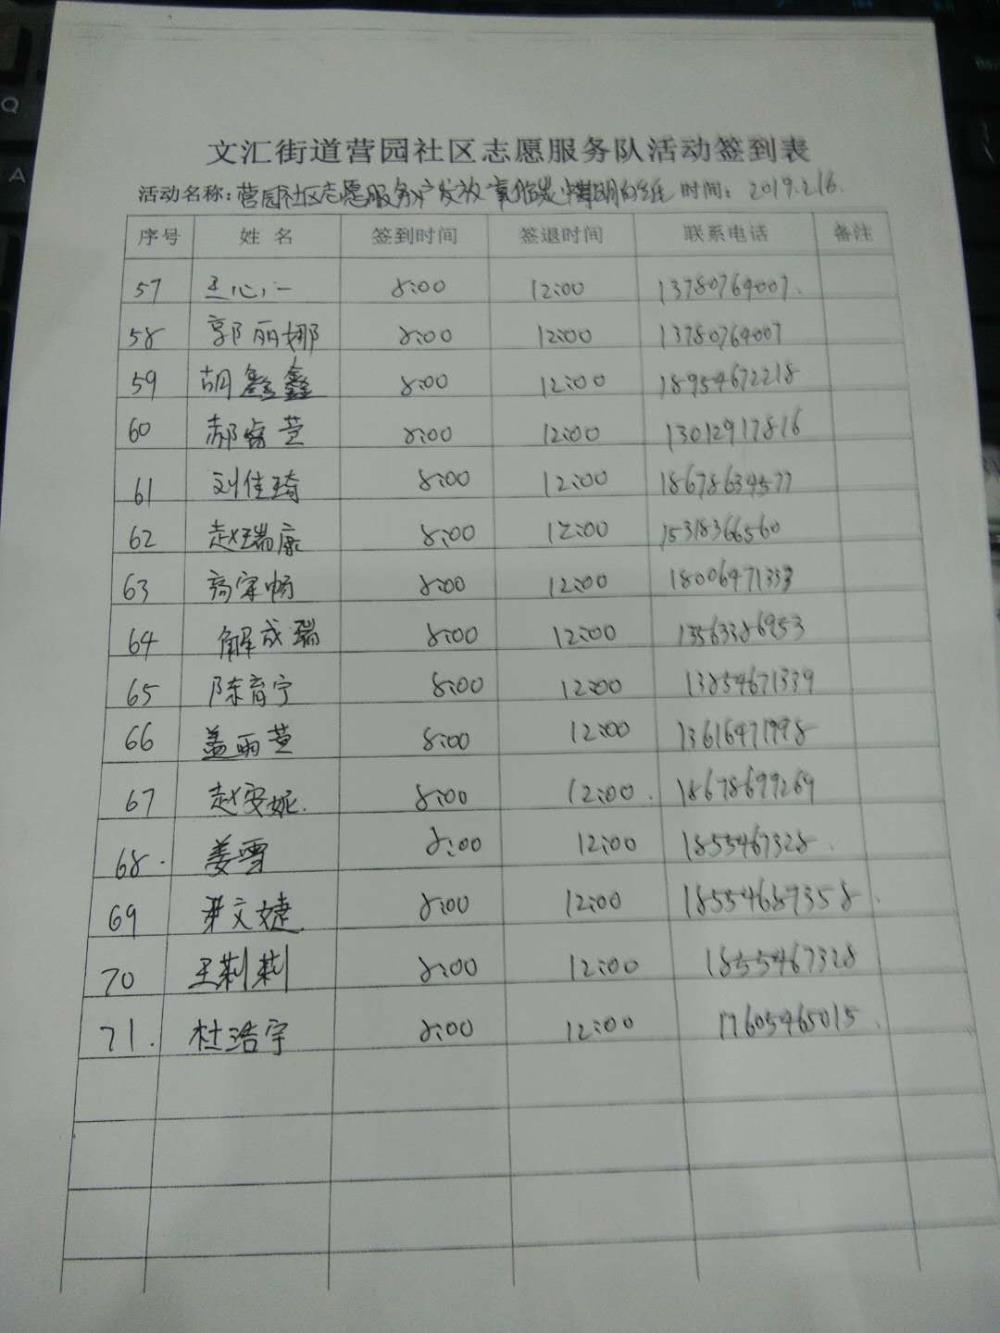 文汇街道营园社区志愿服务队活动签到表
活动名称：营园社区志愿服务发放 时间：2019.2.16.
序号 姓名 签到时间 签退时间 联系电话 备注
57 王心一 8:00 12:00 13780764007.
58 郭丽娜 8:00 12:00 13780764007
59 胡鑫鑫 8:00 12:00 18954672218
60 郝睿萱 8:00 12:00 13012917816
61 刘佳琦 8:00 12:00 18678634577
62 赵瑞康 8:00 12:00 15318366560
63 高家畅 8:00 12:00 18006471333
64 解成瑞 8:00 12:00 13563386953
65 陈育宁 8:00 12:00 13854671339
66 盖雨萱 8:00 12:00 13616471998
67 赵安妮. 8:00 12:00. 18678699269
68. 姜雪 8:00 12:00 1855467328.
69 尹文婕 8:00 12:00 18554687358.
70 王莉莉 8:00 12:00 1855467328
71. 杜浩宇 8:00 12:00 17605465015.
Q
A